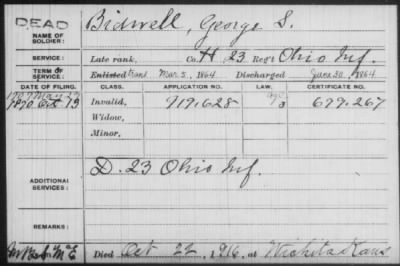 DEAD
NAME OF SOLDIER: Bidwell, George S.
SERVICE: Late rank, Co. H, 23 Reg't Ohio Inf.
TERM OF SERVICE: Enlisted Mar. 5, 1864 Discharged June 30, 1864
DATE OF FILING. CLASS. APPLICATION NO. LAW. CERTIFICATE NO.
1907 May 23
1890 Oct 13 Invalid, 919.628 679.267
Widow,
Minor,
ADDITIONAL SERVICES: D. 23 Ohio Inf.
REMARKS:
Died Oct 22, 1916, at Wichita Kans